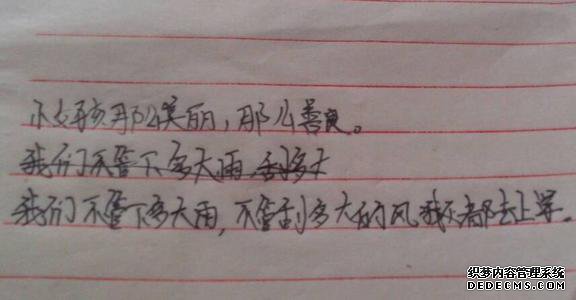 小女孩那么美丽，那么善良。
我们不管下多大雨，刮多大
我们不管下多大雨，不管刮多大的风，我还都去上学。
织梦内容管理系统
DEDECMS.COM